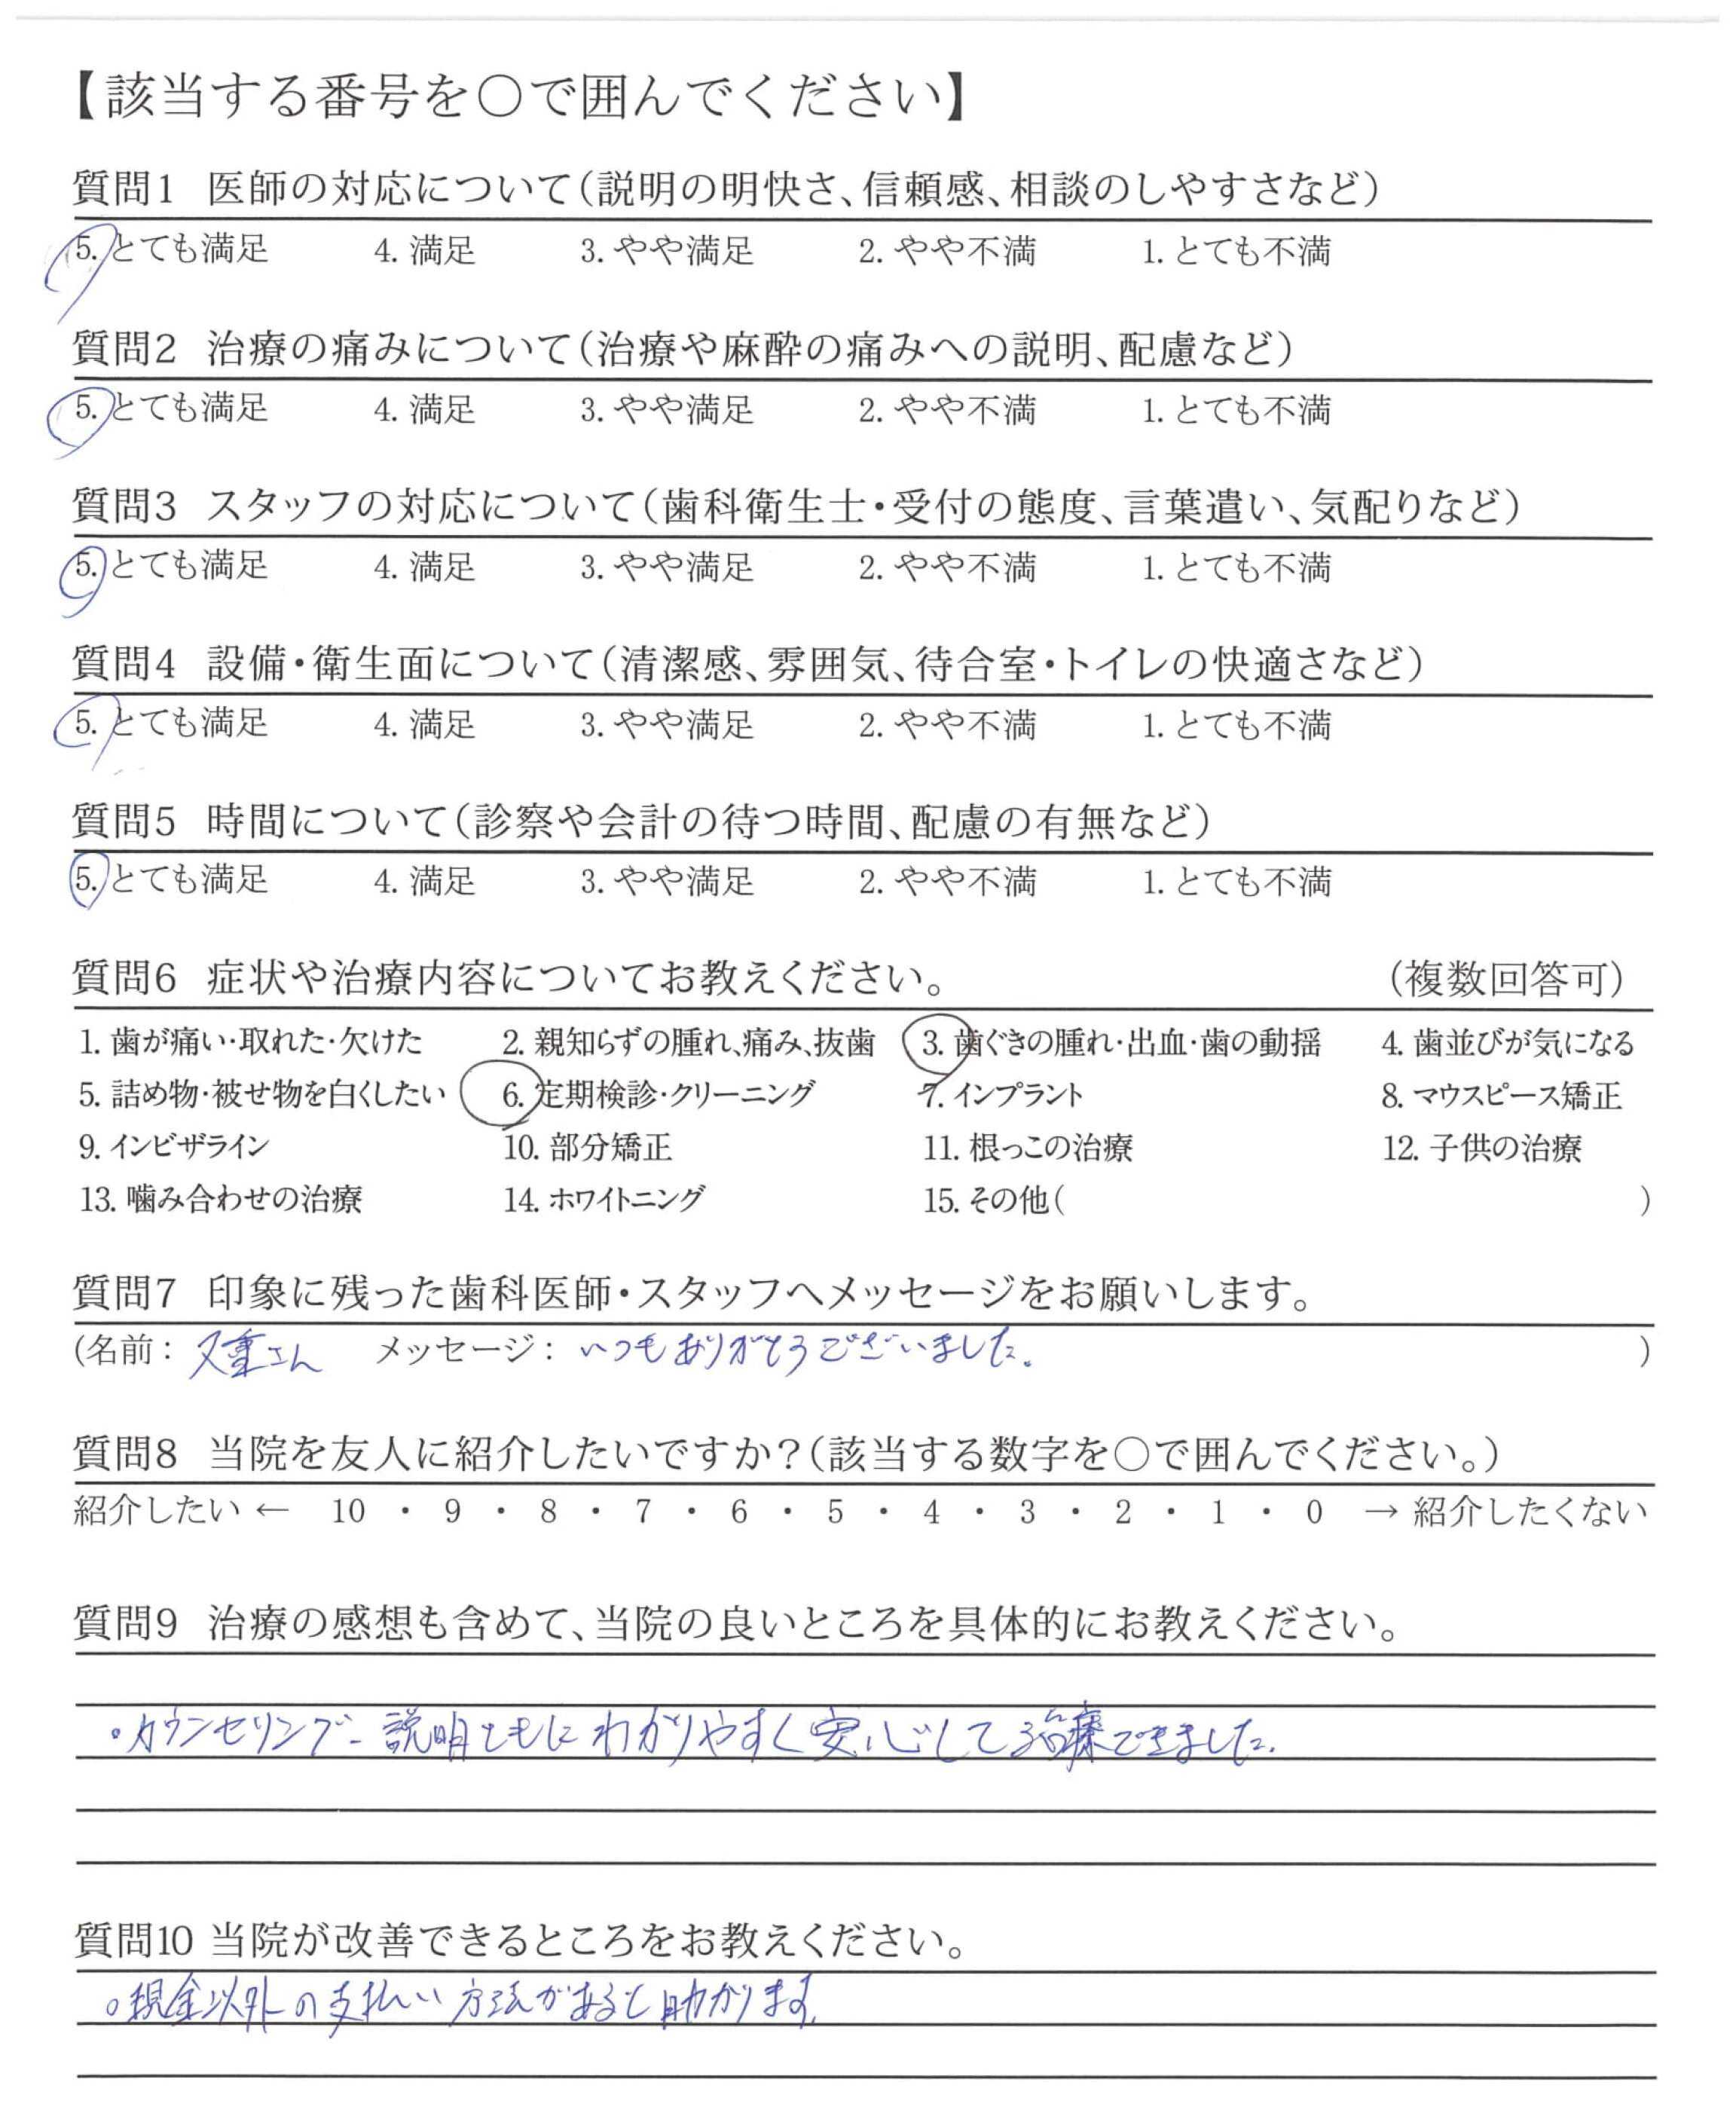 【該当する番号を○で囲んでください】
質問1 医師の対応について(説明の明快さ、信頼感、相談のしやすさなど)
5. とても満足 4. 満足 3. やや満足 2. やや不満 1. とても不満
質問2 治療の痛みについて(治療や麻酔の痛みへの説明、配慮など)
5. とても満足 4. 満足 3. やや満足 2. やや不満 1. とても不満
質問3 スタッフの対応について(歯科衛生士・受付の態度、言葉遣い、気配りなど)
5. とても満足 4. 満足 3. やや満足 2. やや不満 1. とても不満
質問4 設備・衛生面について(清潔感、雰囲気、待合室・トイレの快適さなど)
5. とても満足 4. 満足 3. やや満足 2. やや不満 1. とても不満
質問5 時間について(診察や会計の待つ時間、配慮の有無など)
5. とても満足 4. 満足 3. やや満足 2. やや不満 1. とても不満
質問6 症状や治療内容についてお教えください。 (複数回答可)
1. 歯が痛い・取れた・欠けた 2. 親知らずの腫れ、痛み、抜歯 3. 歯ぐきの腫れ・出血・歯の動揺 4. 歯並びが気になる
5. 詰め物・被せ物を白くしたい 6. 定期検診・クリーニング 7. インプラント 8. マウスピース矯正
9. インビザライン 10. 部分矯正 11. 根っこの治療 12. 子供の治療
13. 噛み合わせの治療 14. ホワイトニング 15. その他( )
質問7 印象に残った歯科医師・スタッフへメッセージをお願いします。
(名前: 又重さん メッセージ: いつもありがとうございました。 )
質問8 当院を友人に紹介したいですか?(該当する数字を○で囲んでください。)
紹介したい ← 10 ・ 9 ・ 8 ・ 7 ・ 6 ・ 5 ・ 4 ・ 3 ・ 2 ・ 1 ・ 0 → 紹介したくない
質問9 治療の感想も含めて、当院の良いところを具体的にお教えください。
・カウンセリング、説明ともにわかりやすく安心して治療できました。
質問10 当院が改善できるところをお教えください。
。現金以外の支払い方法があると助かります。